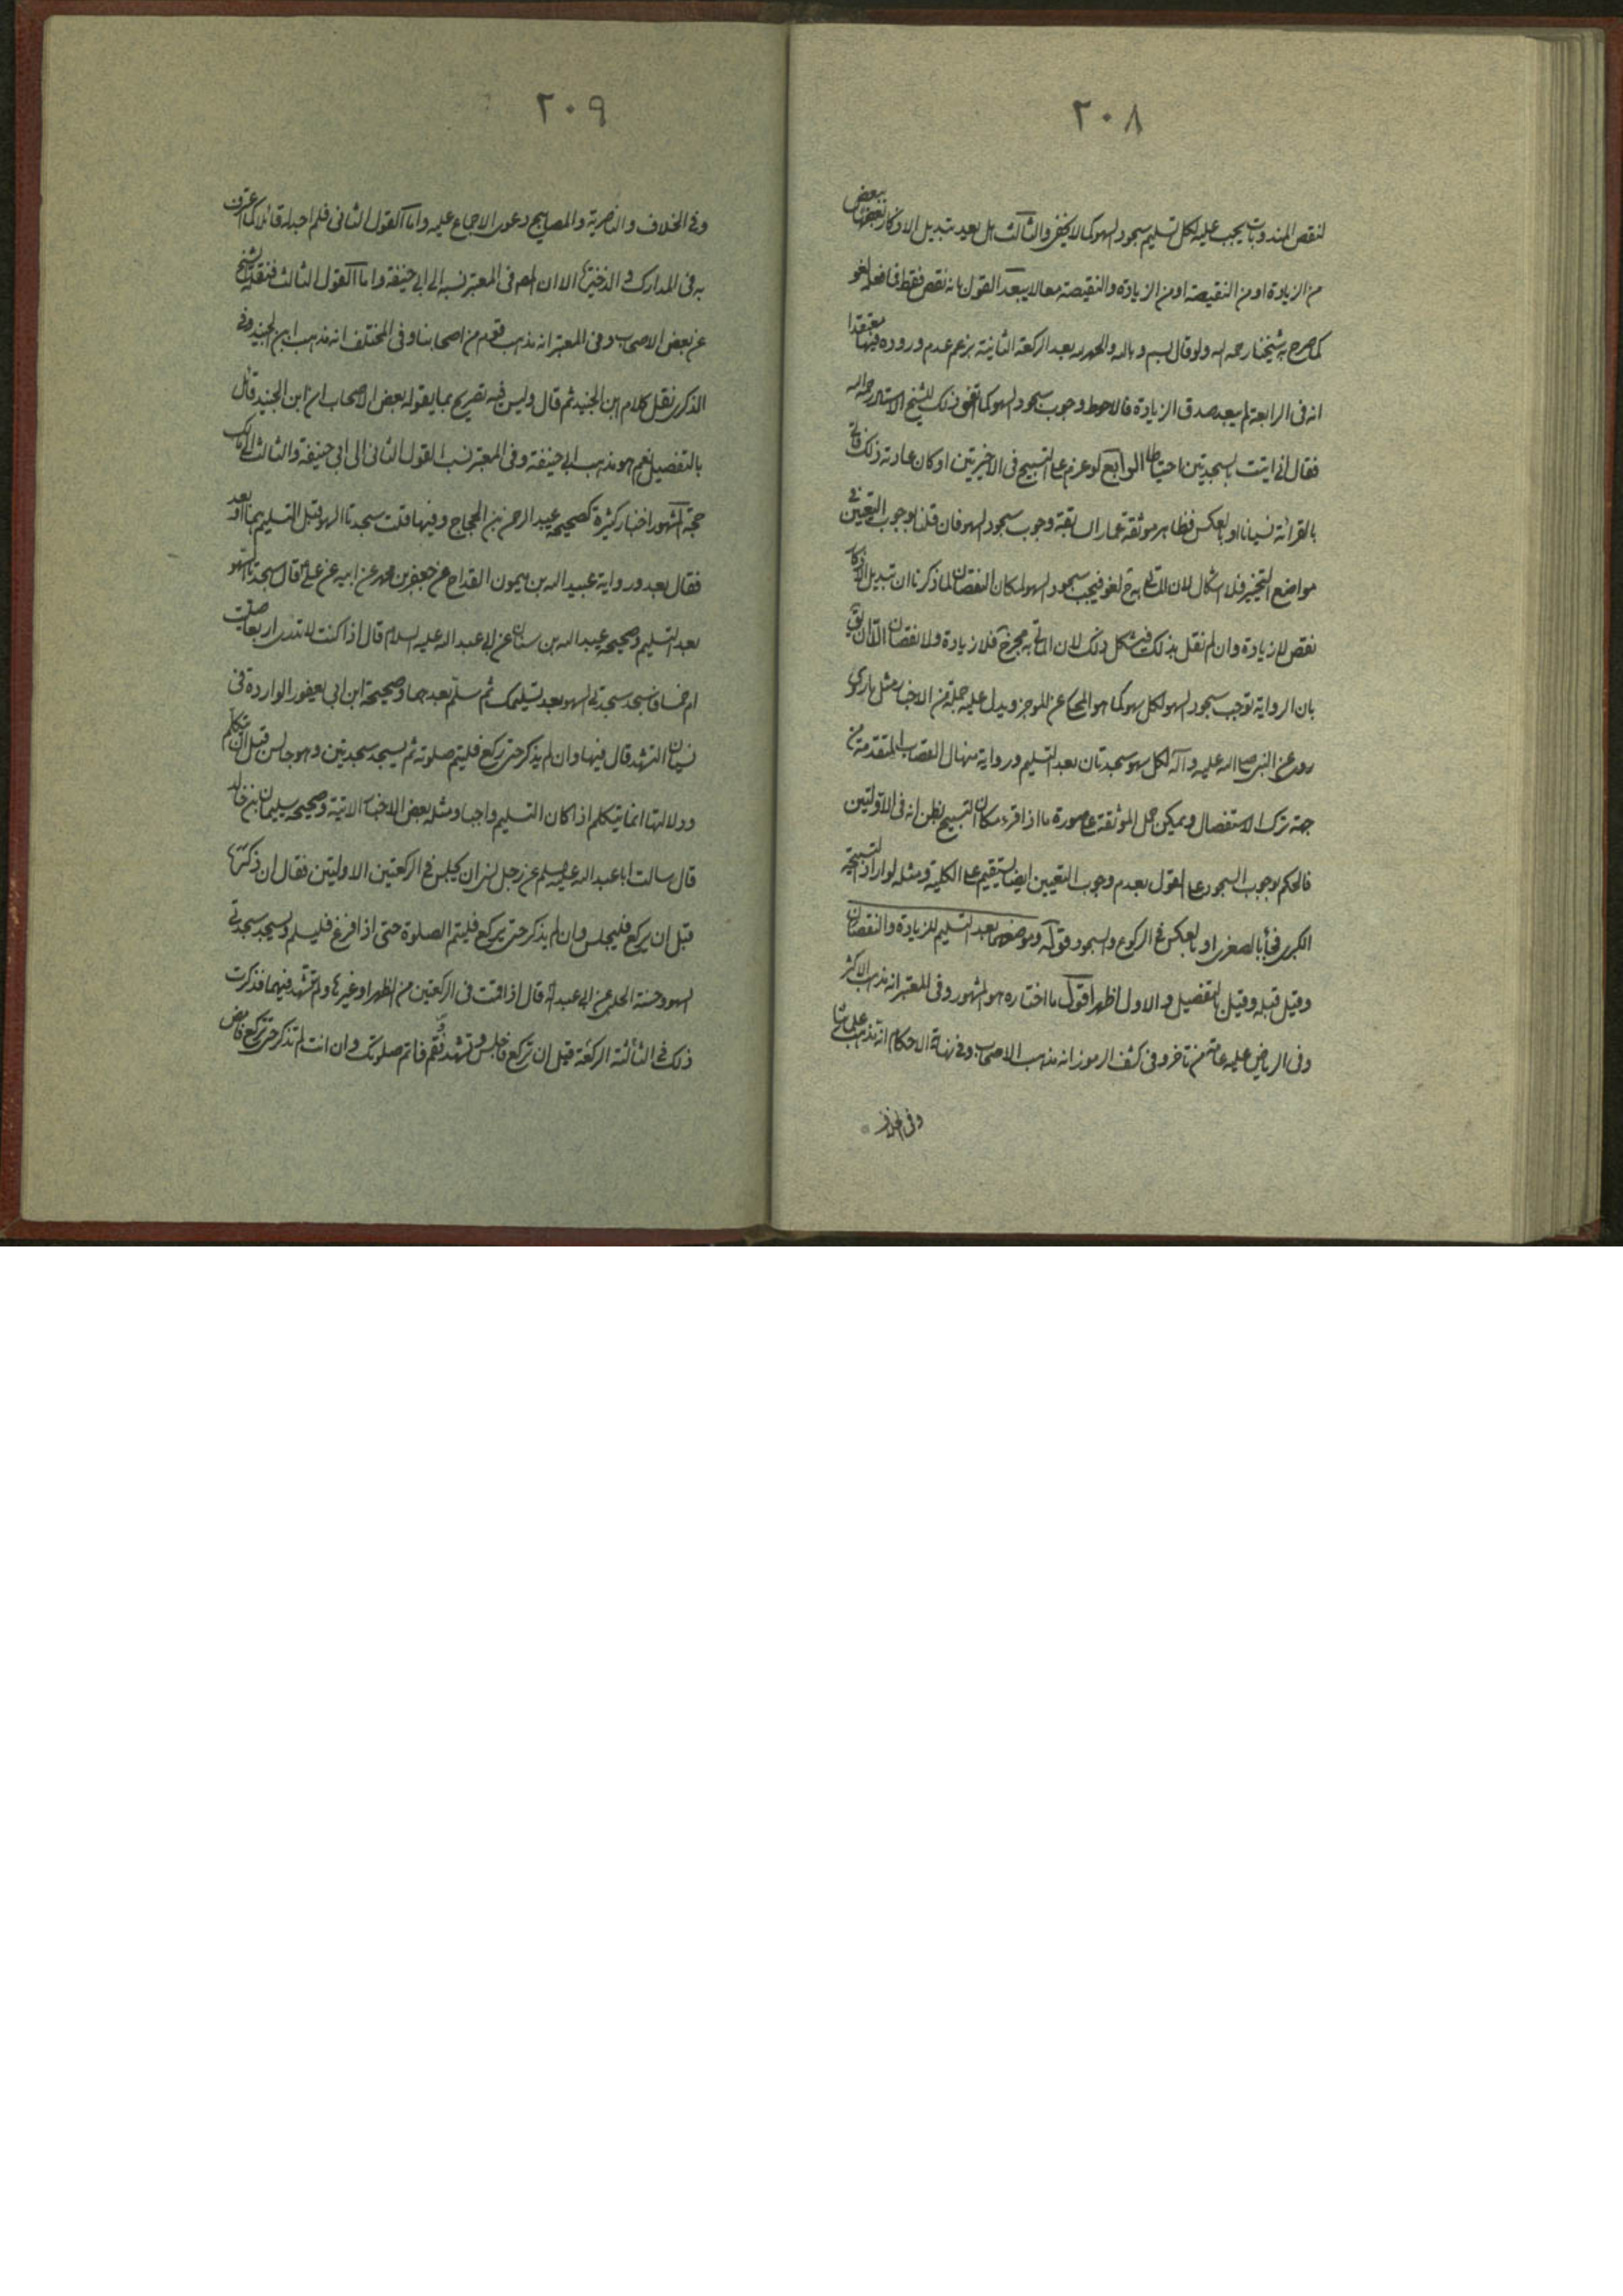 ٢٠٨
لنقص المندوبات يجب عليه لكل تسليم سجود السهو كما لا يخفى والثالث هل يعد تبديل الاذكار بعضها ببعض
من الزيادة او من النقيصة او من الزيادة والنقيصة معا لا يبعد القول بانه نقص فقط فما فعله لغو
كما صرح به شيخنا رحمه الله ولو قال بسم الله وبالله والحمد لله بعد الركعة الثانية بزعم عدم وروده فيها معتقدا
انه في الرابعة لم يبعد صدق الزيادة فالاحوط وجوب سجود السهو كما اتفق ذلك للشيخ الاستاد رحمه الله
فقال اني اتيت بسجدتين احتياطا الرابع لو عزم على التسبيح في الاخيرتين او كان عادته ذلك فاتى
بالقرائة نسيانا او بالعكس فظاهر موثقة عمار السابقة وجوب سجود السهو فان قلنا بوجوب التعيين في
مواضع التخيير فلا اشكال لان الماتي به ح لغو فيجب سجود السهو لمكان النقصان لما ذكرنا ان تبديل الاذكار
نقص لا زيادة وان لم نقل بذلك فيشكل ذلك لان الماتي به مجز ح فلا زيادة ولا نقصان الا ان يق
بان الرواية توجب سجود السهو لكل سهو كما هو المحكي عن الموجز ويدل عليه جملة من الاخبار مثل ما روي
روي عن النبي صلى الله عليه وآله لكل سهو سجدتان بعد التسليم ورواية منهال القصاب المتقدمة من
جهة ترك الاستفصال ويمكن حمل الموثقة على صورة ما اذا قرء مكان التسبيح لظن انه في الاولتين
فالحكم بوجوب السجود على القول بعدم وجوب التعيين ايضا يستقيم على الكلية ومثله لو اراد التسبيحة
الكبرى فجاء بالصغرى او بالعكس في الركوع والسجود قوله وموضعهما بعد التسليم للزيادة والنقصان
وقيل قبله وقيل بالتفصيل والاول اظهر اقول ما اختاره هو المشهور وفي المعتبر انه مذهب الاكثر
وفي الرياض عليه عامة من تاخر وفي كشف الرموز انه مذهب الاصحاب وفي نهاية الاحكام انه مذهب علمائنا
وفي الخلاف
٢٠٩
وفي الخلاف والناصرية والمصابيح دعوى الاجماع عليه واما القول الثاني فلم اجد له قائلا كما اعترف
به في المدارك والذخيرة الا ان المص في المعتبر نسبه الى ابي حنيفة واما القول الثالث فنقله الشيخ
عن بعض الاصحاب وفي المعتبر انه مذهب قوم من اصحابنا وفي المختلف انه مذهب ابن الجنيد وفي
الذكرى نقل كلام ابن الجنيد ثم قال وليس فيه تصريح بما يقوله بعض الاصحاب ان ابن الجنيد قائل
بالتفصيل نعم هو مذهب ابي حنيفة وفي المعتبر نسب القول الثاني الى ابي حنيفة والثالث الى مالك
حجة المشهور اخبار كثيرة كصحيحة عبد الرحمن بن الحجاج وفيها قلت سجدتا السهو قبل التسليم هما او بعد
فقال بعد ورواية عبد الله بن ميمون القداح عن جعفر بن محمد عن ابيه عن علي قال سجدتا السهو
بعد التسليم وصحيحة عبد الله بن سنان عن ابي عبد الله عليه السلام قال اذا كنت لا تدري اربعا صليت
ام خمسا فاسجد سجدتي السهو بعد تسليمك ثم سلم بعدهما وصحيحة ابن ابي يعفور الواردة في
نسيان التشهد قال فيها وان لم يذكر حتى ركع فليتم صلوته ثم يسجد سجدتين وهو جالس قبل ان يتكلم
ودلالتها انما يتكلم اذا كان التسليم واجبا ومثله بعض الاخبار الاتية وصحيحة سليمان بن خالد
قال سالت ابا عبد الله عليه السلم عن رجل نسي ان يجلس في الركعتين الاولتين فقال ان ذكرها
قبل ان يركع فليجلس وان لم يذكر حتى يركع فليتم الصلوة حتى اذا فرغ فليسلم وليسجد سجدتي
السهو وحسنة الحلبي عن ابي عبد الله قال اذا قمت في الركعتين من الظهر او غيرها ولم تتشهد فيهما فذكرت
ذلك في الثالثة الركعة قبل ان تركع فاجلس وتشهد وقم فاتم صلوتك وان انت لم تذكر حتى تركع فامض